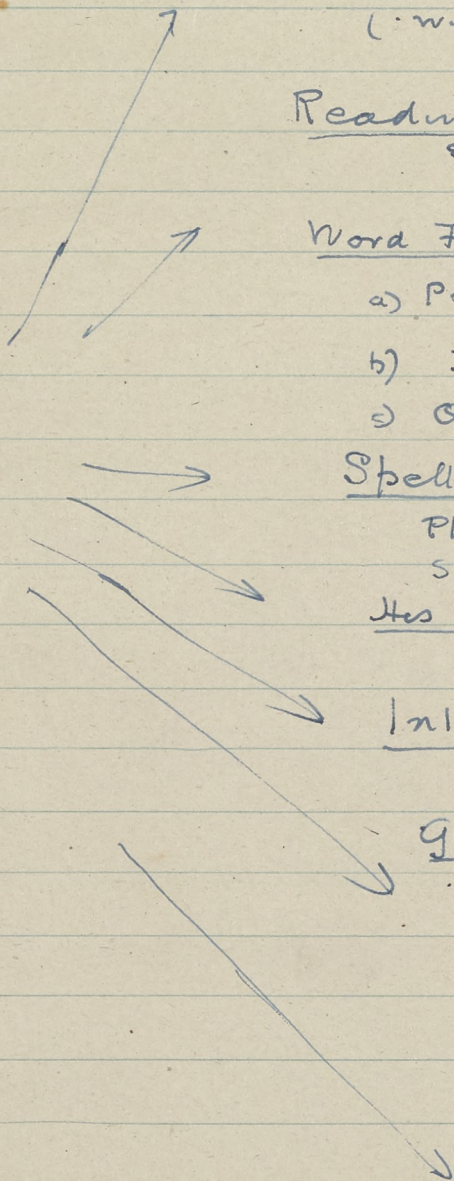 (. w.
Readin
Word F
a) P
b)
c) O
Spell
Pl
S
Hes
Int
G